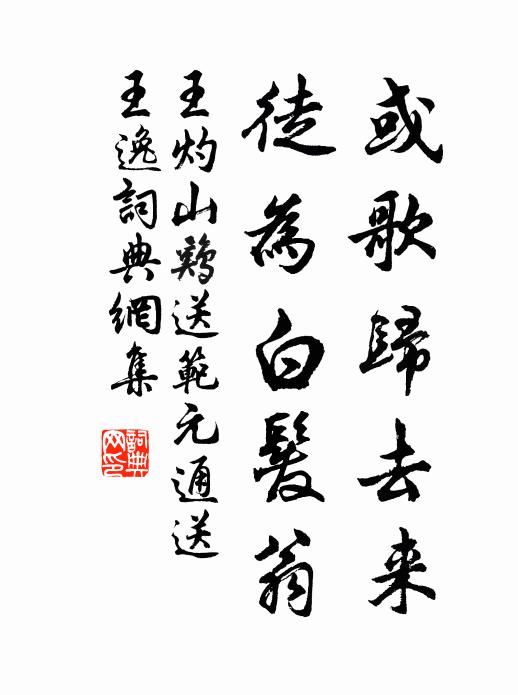 或歌歸去来
徒為白髮翁
王灼山鷄送範元通送
王逸詞典網集
詞典網印